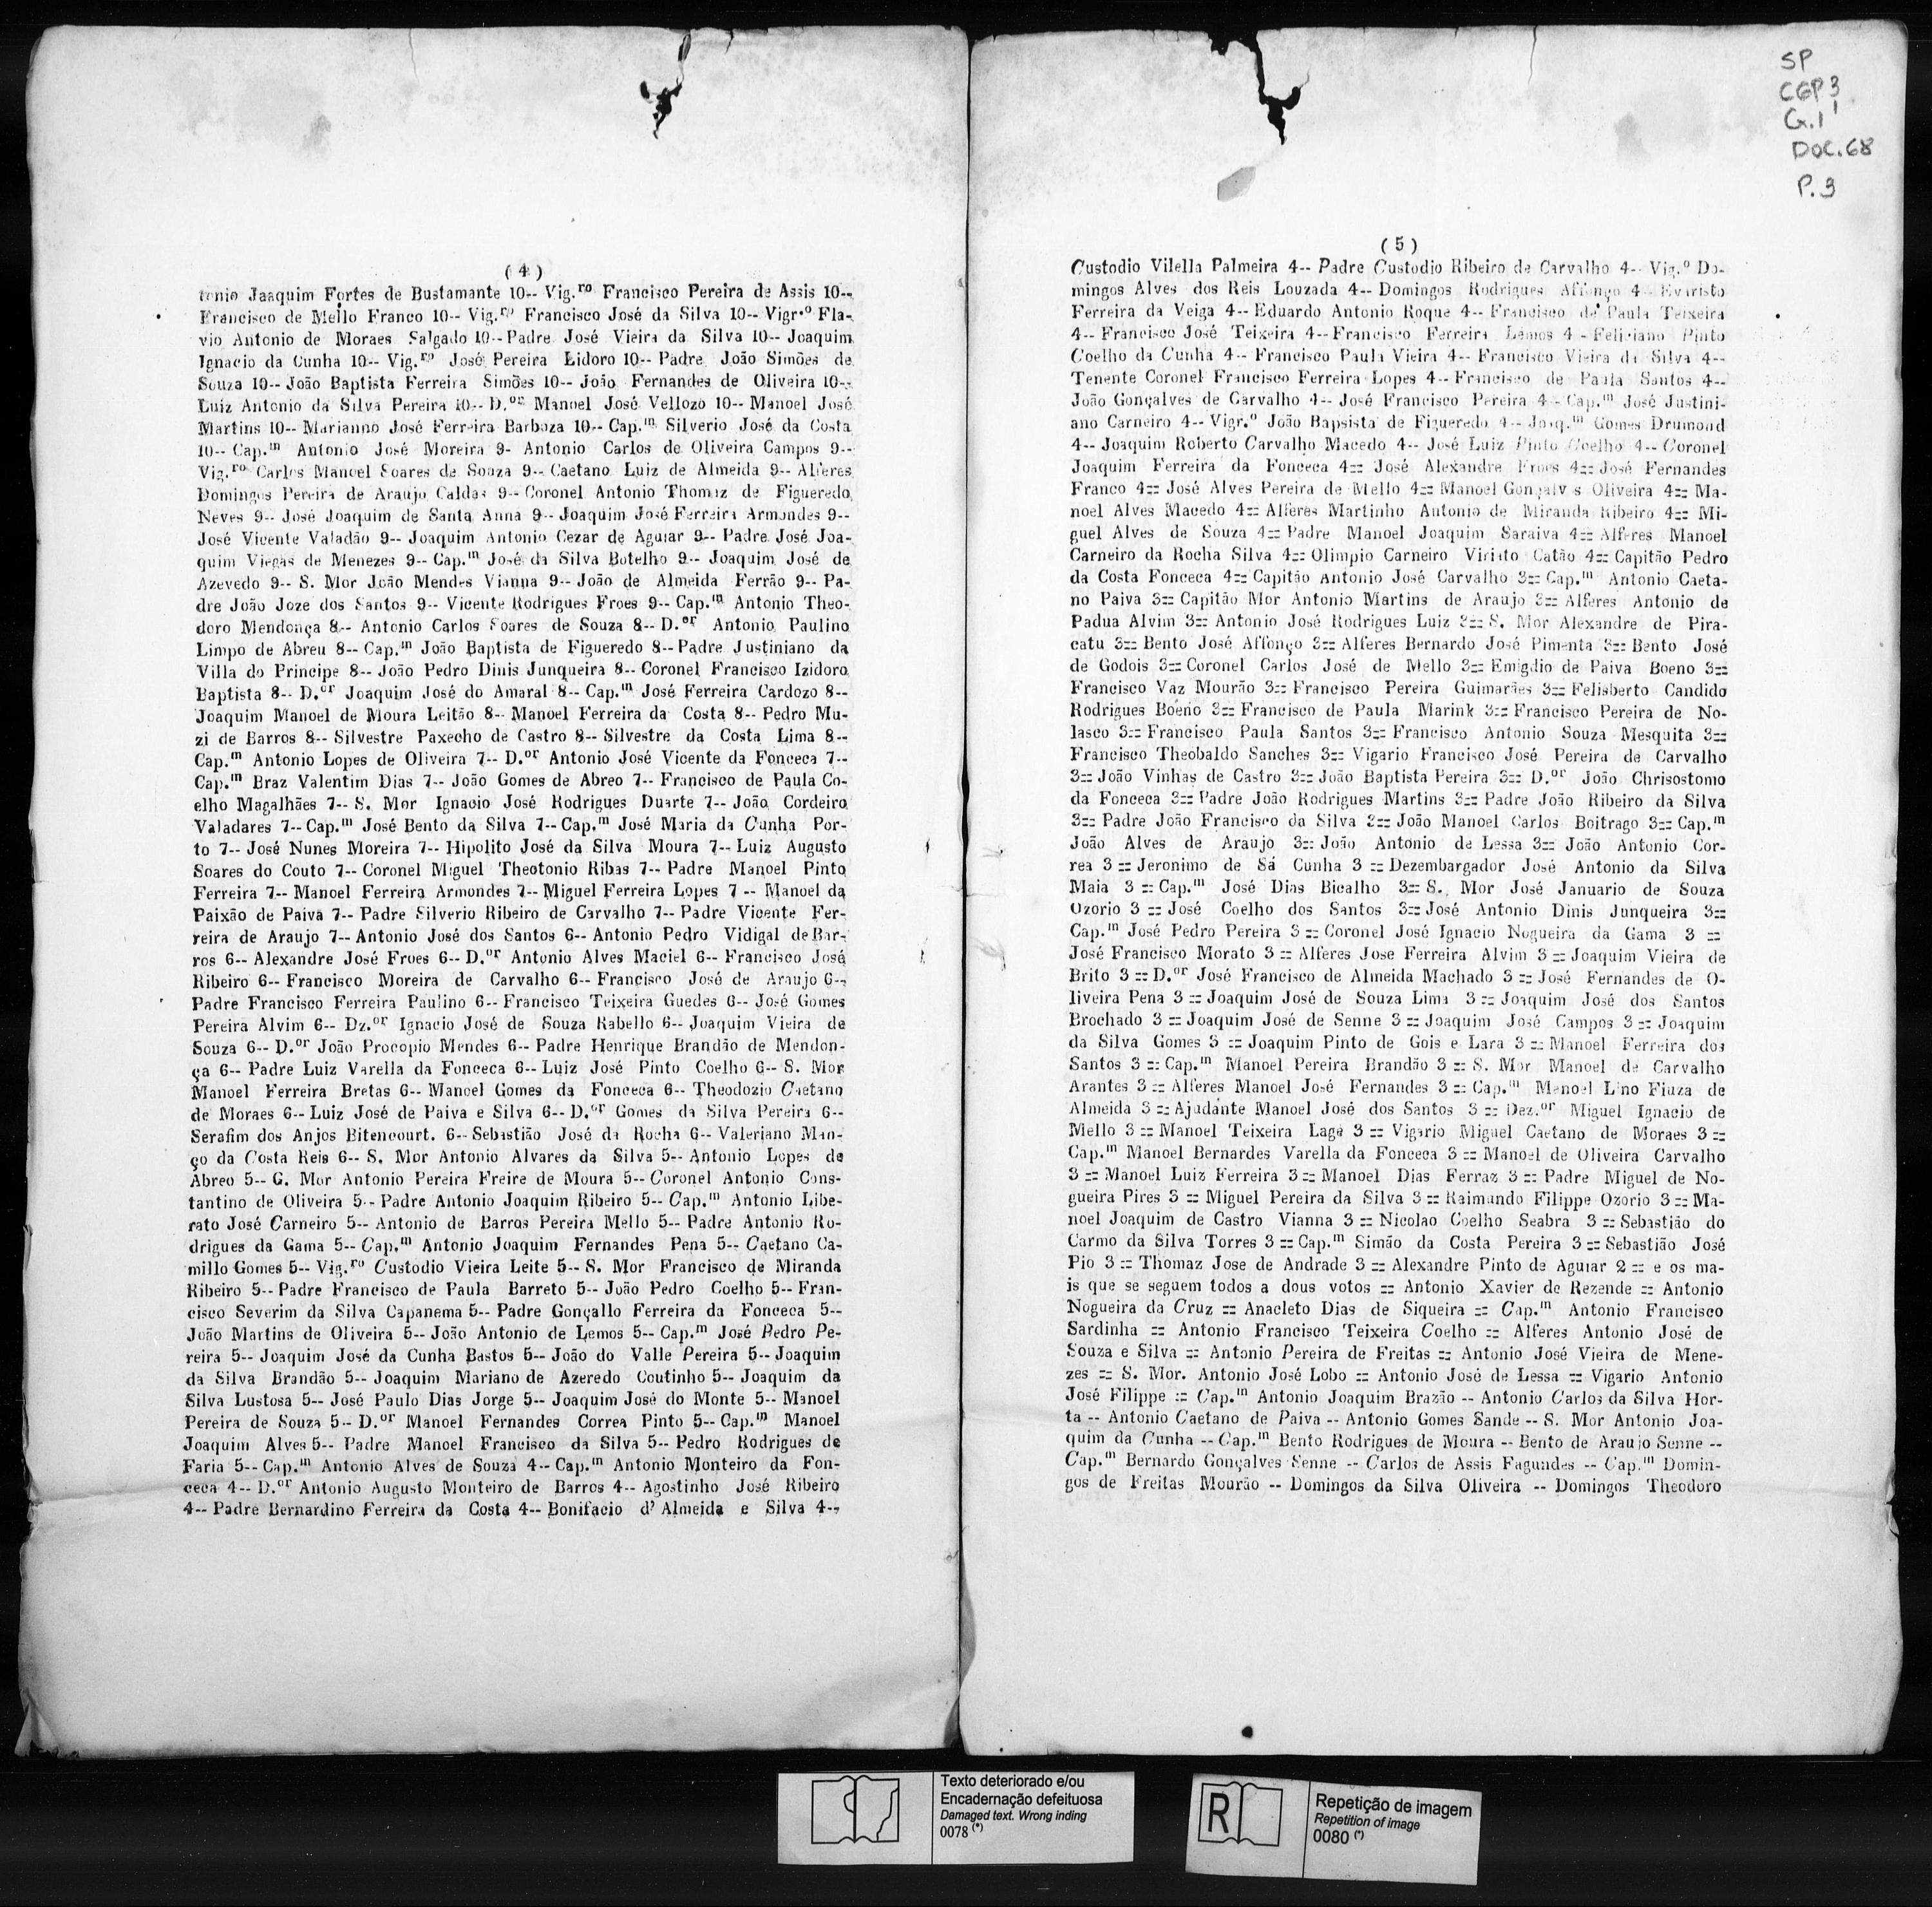 ( 4 )
tonio Jaaquim Fortes de Bustamante 10-- Vig.ro Francisco Pereira de Assis 10--
Francisco de Mello Franco 10-- Vig.ro Francisco José da Silva 10-- Vigr.o Fla-
vio Antonio de Moraes Salgado 10--Padre José Vieira da Silva 10-- Joaquim
Ignacio da Cunha 10-- Vig.ro José Pereira Lidoro 10-- Padre João Simões de
Souza 10-- João Baptista Ferreira Simões 10-- João Fernandes de Oliveira 10--
Luiz Antonio da Silva Pereira 10-- D.or Manoel José Vellozo 10-- Manoel José
Martins 10-- Marianno José Ferreira Barboza 10-- Cap.m Silverio José da Costa
10-- Cap.m Antonio José Moreira 9- Antonio Carlos de Oliveira Campos 9--
Vig.ro Carlos Manoel Soares de Souza 9-- Caetano Luiz de Almeida 9-- Alferes
Domingos Pereira de Araujo Caldas 9-- Coronel Antonio Thomaz de Figueredo
Neves 9-- José Joaquim de Santa Anna 9-- Joaquim José Ferreira Armondes 9--
José Vicente Valadão 9-- Joaquim Antonio Cezar de Aguiar 9-- Padre José Joa-
quim Viegas de Menezes 9-- Cap.m José da Silva Botelho 9-- Joaquim José de
Azevedo 9-- S. Mor João Mendes Vianna 9-- João de Almeida Ferrão 9-- Pa-
dre João Joze dos Santos 9-- Vicente Rodrigues Froes 9-- Cap.m Antonio Theo-
doro Mendonça 8-- Antonio Carlos Soares de Souza 8-- D.or Antonio Paulino
Limpo de Abreu 8-- Cap.m João Baptista de Figueredo 8-- Padre Justiniano da
Villa do Principe 8-- João Pedro Dinis Junqueira 8-- Coronel Francisco Izidoro
Baptista 8-- D.or Joaquim José do Amaral 8-- Cap.m José Ferreira Cardozo 8--
Joaquim Manoel de Moura Leitão 8-- Manoel Ferreira da Costa 8-- Pedro Mu-
zi de Barros 8-- Silvestre Paxecho de Castro 8-- Silvestre da Costa Lima 8--
Cap.m Antonio Lopes de Oliveira 7-- D.or Antonio José Vicente da Fonceca 7--
Cap.m Braz Valentim Dias 7-- João Gomes de Abreo 7-- Francisco de Paula Co-
elho Magalhães 7-- S. Mor Ignacio José Rodrigues Duarte 7-- João Cordeiro
Valadares 7-- Cap.m José Bento da Silva 7-- Cap.m José Maria da Cunha Por-
to 7-- José Nunes Moreira 7-- Hipolito José da Silva Moura 7-- Luiz Augusto
Soares do Couto 7-- Coronel Miguel Theotonio Ribas 7-- Padre Manoel Pinto
Ferreira 7-- Manoel Ferreira Armondes 7-- Miguel Ferreira Lopes 7 -- Manoel da
Paixão de Paiva 7-- Padre Silverio Ribeiro de Carvalho 7-- Padre Vicente Fer-
reira de Araujo 7-- Antonio José dos Santos 6-- Antonio Pedro Vidigal de Bar-
ros 6-- Alexandre José Froes 6-- D.or Antonio Alves Maciel 6-- Francisco José
Ribeiro 6-- Francisco Moreira de Carvalho 6-- Francisco José de Araujo 6--
Padre Francisco Ferreira Paulino 6-- Francisco Teixeira Guedes 6-- José Gomes
Pereira Alvim 6-- Dz.or Ignacio José de Souza Rabello 6-- Joaquim Vieira de
Souza 6-- D.or João Procopio Mendes 6-- Padre Henrique Brandão de Mendon-
ça 6-- Padre Luiz Varella da Fonceca 6-- Luiz José Pinto Coelho 6-- S. Mor
Manoel Ferreira Bretas 6-- Manoel Gomes da Fonceca 6-- Theodozio Caetano
de Moraes 6-- Luiz José de Paiva e Silva 6-- D.or Gomes da Silva Pereira 6--
Serafim dos Anjos Bitencourt. 6-- Sebastião José da Rocha 6-- Valeriano Man-
ço da Costa Reis 6-- S. Mor Antonio Alvares da Silva 5-- Antonio Lopes de
Abreo 5-- G. Mor Antonio Pereira Freire de Moura 5-- Coronel Antonio Cons-
tantino de Oliveira 5-- Padre Antonio Joaquim Ribeiro 5-- Cap.m Antonio Libe-
rato José Carneiro 5-- Antonio de Barros Pereira Mello 5-- Padre Antonio Ro-
drigues da Gama 5-- Cap.m Antonio Joaquim Fernandes Pena 5-- Caetano Ca-
millo Gomes 5-- Vig.ro Custodio Vieira Leite 5-- S. Mor Francisco de Miranda
Ribeiro 5-- Padre Francisco de Paula Barreto 5-- João Pedro Coelho 5-- Fran-
cisco Severim da Silva Capanema 5-- Padre Gonçallo Ferreira da Fonceca 5--
João Martins de Oliveira 5-- João Antonio de Lemos 5-- Cap.m José Pedro Pe-
reira 5-- Joaquim José da Cunha Bastos 5-- João do Valle Pereira 5-- Joaquim
da Silva Brandão 5-- Joaquim Mariano de Azeredo Coutinho 5-- Joaquim da
Silva Lustosa 5-- José Paulo Dias Jorge 5-- Joaquim José do Monte 5-- Manoel
Pereira de Souza 5-- D.or Manoel Fernandes Correa Pinto 5-- Cap.m Manoel
Joaquim Alves 5-- Padre Manoel Francisco da Silva 5-- Pedro Rodrigues de
Faria 5-- Cap.m Antonio Alves de Souza 4-- Cap.m Antonio Monteiro da Fon-
ceca 4-- D.or Antonio Augusto Monteiro de Barros 4-- Agostinho José Ribeiro
4-- Padre Bernardino Ferreira da Costa 4-- Bonifacio d' Almeida e Silva 4--
SP
CGP3
G.1
DOC.68
P.3
( 5 )
Custodio Vilella Palmeira 4-- Padre Custodio Ribeiro de Carvalho 4-- Vig.o Do-
mingos Alves dos Reis Louzada 4-- Domingos Rodrigues Affonço 4-- Evaristo
Ferreira da Veiga 4-- Eduardo Antonio Roque 4-- Francisco de Paula Teixeira
4-- Francisco José Teixeira 4-- Francisco Ferreira Lemos 4-- Feliciano Pinto
Coelho da Cunha 4-- Francisco Paula Vieira 4-- Francisco Vieira da Silva 4--
Tenente Coronel Francisco Ferreira Lopes 4-- Francisco de Paula Santos 4--
João Gonçalves de Carvalho 4-- José Francisco Pereira 4-- Cap.m José Justini-
ano Carneiro 4-- Vigr.o João Bapsista de Figueredo 4-- Joaq.m Gomes Drumond
4-- Joaquim Roberto Carvalho Macedo 4-- José Luiz Pinto Coelho 4-- Coronel
Joaquim Ferreira da Fonceca 4== José Alexandre Froes 4== José Fernandes
Franco 4== José Alves Pereira de Mello 4== Manoel Gonçalves Oliveira 4== Ma-
noel Alves Macedo 4== Alferes Martinho Antonio de Miranda Ribeiro 4== Mi-
guel Alves de Souza 4== Padre Manoel Joaquim Saraiva 4== Alferes Manoel
Carneiro da Rocha Silva 4== Olimpio Carneiro Viriato Catão 4== Capitão Pedro
da Costa Fonceca 4== Capitão Antonio José Carvalho 3== Cap.m Antonio Caeta-
no Paiva 3== Capitão Mor Antonio Martins de Araujo 3== Alferes Antonio de
Padua Alvim 3== Antonio José Rodrigues Luiz 3== S. Mor Alexandre de Pira-
catu 3== Bento José Affonço 3== Alferes Bernardo José Pimenta 3== Bento José
de Godois 3== Coronel Carlos José de Mello 3== Emigdio de Paiva Boeno 3==
Francisco Vaz Mourão 3== Francisco Pereira Guimarães 3== Felisberto Candido
Rodrigues Boeno 3== Francisco de Paula Marink 3== Francisco Pereira de No-
lasco 3== Francisco Paula Santos 3== Francisco Antonio Souza Mesquita 3==
Francisco Theobaldo Sanches 3== Vigario Francisco José Pereira de Carvalho
3== João Vinhas de Castro 3== João Baptista Pereira 3== D.or João Chrisostomo
da Fonceca 3== Padre João Rodrigues Martins 3== Padre João Ribeiro da Silva
3== Padre João Francisco da Silva 3== João Manoel Carlos Boitrago 3== Cap.m
João Alves de Araujo 3== João Antonio de Lessa 3== João Antonio Cor-
rea 3 == Jeronimo de Sá Cunha 3 == Dezembargador José Antonio da Silva
Maia 3 == Cap.m José Dias Bicalho 3== S. Mor José Januario de Souza
Ozorio 3 == José Coelho dos Santos 3== José Antonio Dinis Junqueira 3==
Cap.m José Pedro Pereira 3 == Coronel José Ignacio Nogueira da Gama 3 ==
José Francisco Morato 3 == Alferes Jose Ferreira Alvim 3 == Joaquim Vieira de
Brito 3 == D.or José Francisco de Almeida Machado 3 == José Fernandes de O-
liveira Pena 3 == Joaquim José de Souza Lima 3 == Joaquim José dos Santos
Brochado 3 == Joaquim José de Senne 3 == Joaquim José Campos 3 == Joaquim
da Silva Gomes 3 == Joaquim Pinto de Gois e Lara 3 == Manoel Ferreira dos
Santos 3 == Cap.m Manoel Pereira Brandão 3 == S. Mor Manoel de Carvalho
Arantes 3 == Alferes Manoel José Fernandes 3 == Cap.m Manoel Lino Fiuza de
Almeida 3 == Ajudante Manoel José dos Santos 3 == Dez.or Miguel Ignacio de
Mello 3 == Manoel Teixeira Lage 3 == Vigario Miguel Caetano de Moraes 3 ==
Cap.m Manoel Bernardes Varella da Fonceca 3 == Manoel de Oliveira Carvalho
3 == Manoel Luiz Ferreira 3 == Manoel Dias Ferraz 3 == Padre Miguel de No-
gueira Pires 3 == Miguel Pereira da Silva 3 == Raimundo Filippe Ozorio 3 == Ma-
noel Joaquim de Castro Vianna 3 == Nicolao Coelho Seabra 3 == Sebastião do
Carmo da Silva Torres 3 == Cap.m Simão da Costa Pereira 3 == Sebastião José
Pio 3 == Thomaz Jose de Andrade 3 == Alexandre Pinto de Aguiar 2 == e os ma-
is que se seguem todos a dous votos == Antonio Xavier de Rezende == Antonio
Nogueira da Cruz == Anacleto Dias de Siqueira == Cap.m Antonio Francisco
Sardinha == Antonio Francisco Teixeira Coelho == Alferes Antonio José de
Souza e Silva == Antonio Pereira de Freitas == Antonio José Vieira de Mene-
zes == S. Mor. Antonio José Lobo == Antonio José de Lessa == Vigario Antonio
José Filippe == Cap.m Antonio Joaquim Brazão -- Antonio Carlos da Silva Hor-
ta -- Antonio Caetano de Paiva -- Antonio Gomes Sande -- S. Mor Antonio Joa-
quim da Cunha -- Cap.m Bento Rodrigues de Moura -- Bento de Araujo Senne --
Cap.m Bernardo Gonçalves Senne -- Carlos de Assis Fagundes -- Cap.m Domin-
gos de Freitas Mourão -- Domingos da Silva Oliveira -- Domingos Theodoro
Texto deteriorado e/ou
Encadernação defeituosa
Damaged text. Wrong inding
0078 (*)
R
Repetição de imagem
Repetition of image
0080 (*)